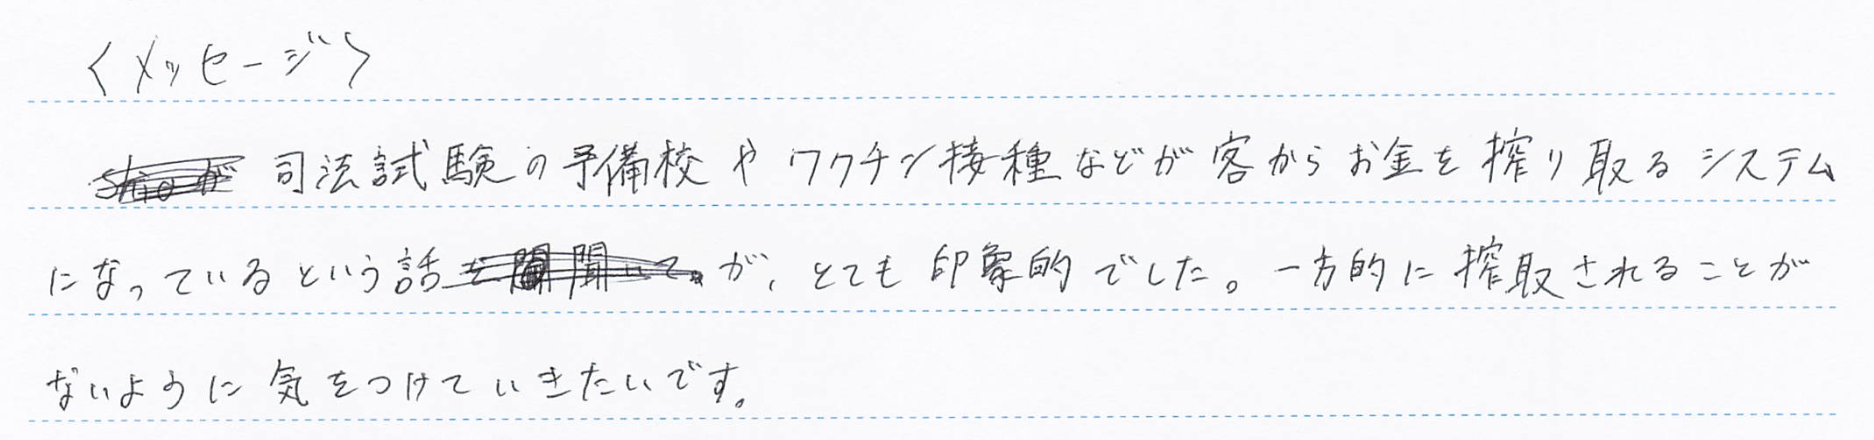 〈メッセージ〉
司法試験の予備校やワクチン接種などが客からお金を搾り取るシステム
になっているという話が、とても印象的でした。一方的に搾取されることが
ないように気をつけていきたいです。